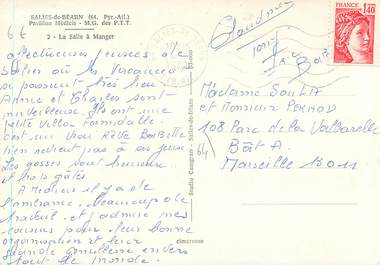 SALIES-de-BÉARN (64. Pyr.-Atl.)
Pavillon Médicis - M.G. des P.T.T.
2 - La Salle à Manger
6€
affectueuses pensées de
Salies où les Vacances
se passent très bien
Anne et Charles sont
merveilleux. Ils ont une
petite Villa formidable
c'est un vrai Rêve
rien
Les gosses sont heureux
et trop gâtés
A Médicis il y a de
l'ambiance, beaucoup de
travail et j'admire mes
cousins pour leur bonne
organisation et leur
grande gentillesse envers
tout le monde.
Claudine
Tony
Studio Caugcor - Salies-de-Béarn
64
REPUBLIQUE FRANCAISE
1,40
Madame SoulA
et Monsieur PERNOD
108 Parc de la Valbarelle
Bât A
Marseille 13011